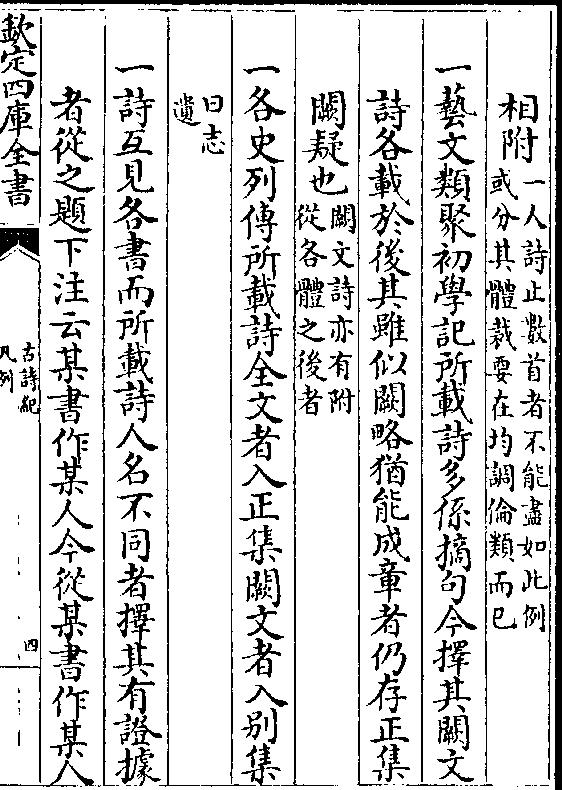 相附一人詩止數首者不能盡如此例
或分其體裁要在均調倫類而已
一藝文類聚初學記所載詩多係摘句今擇其闕文
詩各載於後其雖似闕略猶能成章者仍存正集
闕疑也闕文詩亦有附
從各體之後者
一各史列傳所載詩全文者入正集闕文者入别集
曰志
遺
一詩互見各書而所載詩人名不同者擇其有證據
者從之題下注云某書作某人今從某書作某人
欽定四庫全書
古詩紀
凡例
四